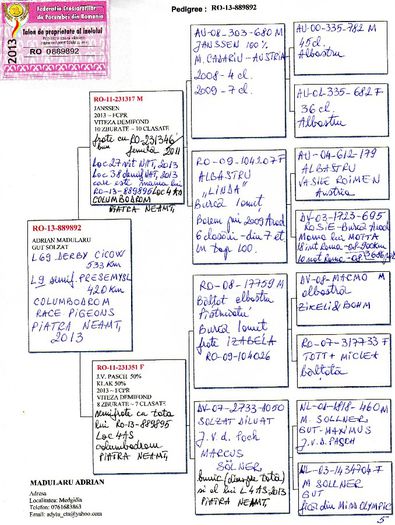 Pedigree : RO-13-889892
Federatia Crescatorilor
de Porumbei din Romania
Talon de proprietate al inelului
2013
RO 0889892
RO-13-889892
ADRIAN MADULARU
GUT SOLZAT
L69 DERBY CICOW
533 KM
L9 semif. PRESEMYSL
420 KM
COLUMBODROM
RACE PIGEONS
PIATRA NEAMȚ,
2013
RO-11-231317 M
JANSSEN
2013 - FCPR
VITEZA DEMIFOND
10 ZBURATE - 10 CLASATE
frate cu RO-231346
bun femilă 2011
Loc 27 vit NAT, 2013
Loc 38 demif NAT, 2013
care este mama lui
RO-13-889895 Loc 4 AS
COLUMBODROM
PIATRA NEAMȚ,
RO-11-231351 F
J.V. PASCH 50%
KLAK 50%
2013 - FCPR
VITEZA DEMIFOND
8 ZBURATE - 7 CLASATE
semifrate cu tata
lui RO-13-889895
Loc 4 AS
columbodrom
PIATRA NEAMȚ,
AU-08-303-680 M
JANSSEN 100%
M. CABARIU - AUSTRIA
2008 - 4 cl.
2009 - 7 cl.
RO-09-104207 F
ALBASTRU
"LINDA"
Burcă Ionuț
2009 Arad
6 clasări din 7 et
în top 100.
RO-08-17759 M
Bălțat albastru
Burcă Ionuț
frate IZABELA
RO-09-104026
DV-07-2733-1050
SOLZAT DILUAT
J.V.d. Pach
MARCUS
SOLLNER,
bunic (dinspre tată)
și el lui L 4 AS, 2013
PIATRA NEAMȚ
AU-00-335-782 M
45 cl.
Albastru
AU-02-335-682 F
36 cl.
Albastru
AU-04-612-179
ALBASTRU
VASILE ROIMEN
Austria
DV-03-1723-695
ROSIE - Burcă Arad
Mama lui MOTTA
DV-08-MACMO M
albastră
ZIKELI & BOHM
RO-07-317733 F
TOTT + MICLEA
bălțată
NL-01-1818-460 M
M. SOLLNER
GUT-MAXIMUS
J.v.d. PASCH
NL-03-1434704 F
M SOLLNER
GUT
fiica din Miss OLYMPIC
5
MADULARU ADRIAN
Adresa
Localitatea: Medgidia
Telefon: 0761683863
Email: adytu_cta@yahoo.com